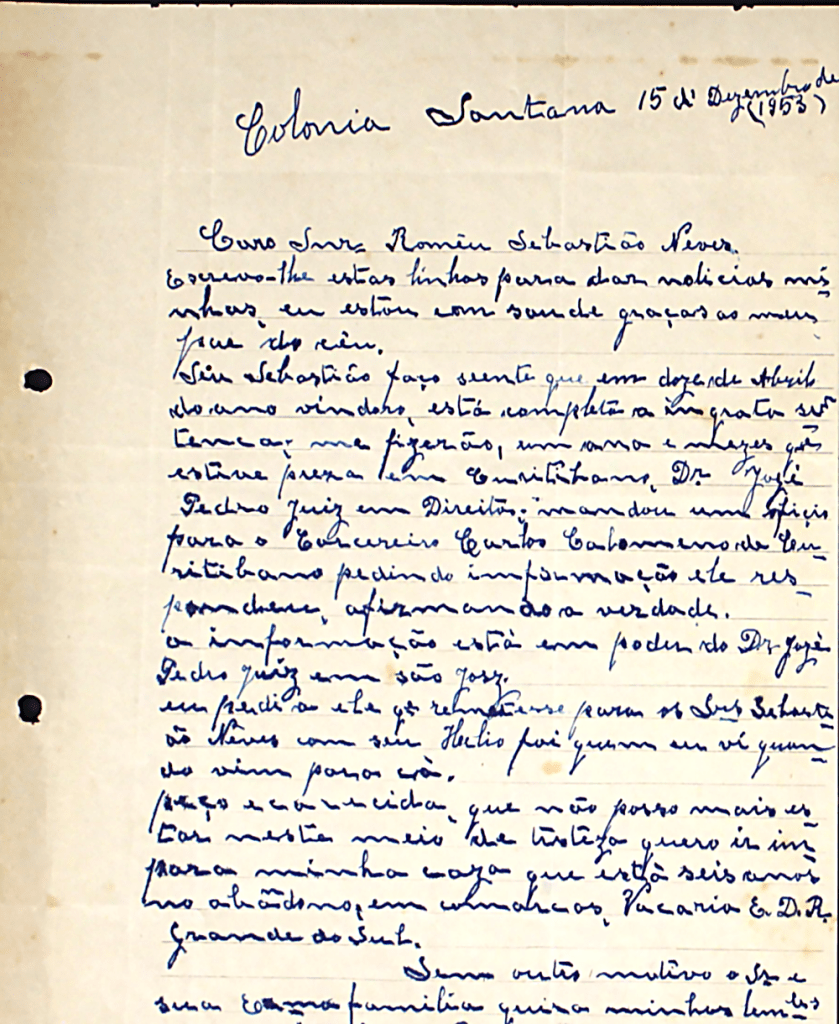 Colonia Santana 15 di Dezembro de
(1953)
Caro Snr. Romêu Sebastião Neves.
Escrevo-lhe estas linhas para dar noticias mi-
nhas, eu estou com saude graças ao meu
pae do cêu.
Sêu Sebastião faço siente que em doze de Abril
do ano vindoro, está completa a ingrata sẽ
tenca; me fizerão, um ano e mezes qê
estive preza em Curitibano, Dr. Jozé
Pedro Juiz em Direito; mandou um ofiçio
para o Carcereiro Carlos Calomeno de Cu-
ritibano pedindo informação ele res-
pondeu, afirmando a verdade.
a informação está em poder do Dr Jozé
Pedro Juiz em são Joze.
eu pedi a ele qe remetesse para os Snrs Sebasti-
ão Neves com seu Helio foi quem eu vi quan-
do vim para cà.
peço encarecida, que não posso mais es-
tar nesta meio de tristeza quero ir im
para minha caza que està seis anos
no abãdono, em comarcas, Vacaria E. D. R.
Grande do Sul.
Sem outro motivo o Sr e
sua Exma familia queira minhas lem-